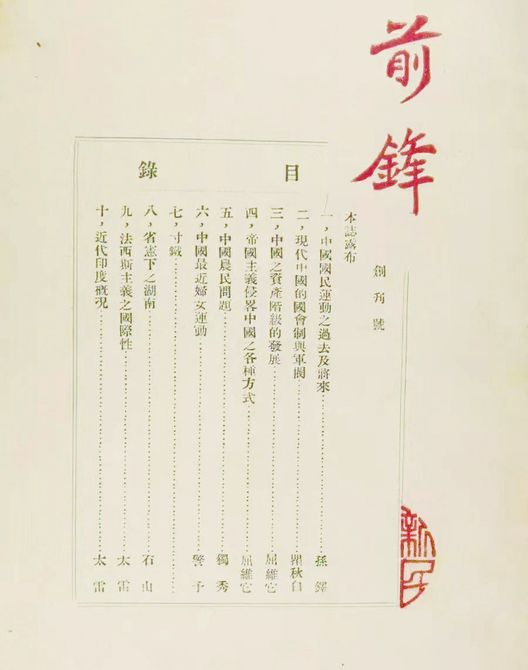 前鋒
創刊號
目錄
本誌露布
一，中國國民運動之過去及將來………孫鐸
二，現代中國的國會制與軍閥………瞿秋白
三，中國之資產階級的發展………屈維它
四，帝國主義侵畧中國之各種方式………屈維它
五，中國農民問題………獨秀
六，中國最近婦女運動………警予
七，寸鐵………
八，省憲下之湖南………石山
九，法西斯主義之國際性………太雷
十，近代印度概況………太雷